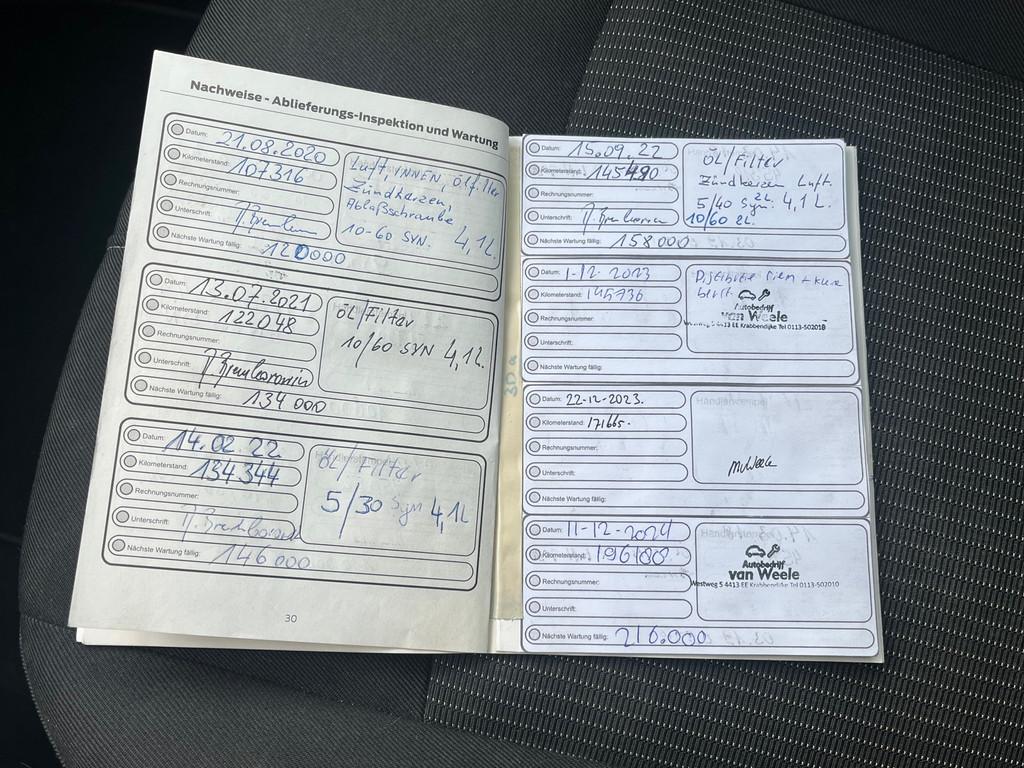 Nachweise - Ablieferungs-Inspektion und Wartung
Datum: 21.08.2020
Kilometerstand: 107316
Rechnungsnummer:
Unterschrift:
Nächste Wartung fällig: 120000
Luft, INNEN, Ölfilter
Zündkerzen,
Ablaßschraube
10-60 SYN. 4,1L.
Datum: 13.07.2021
Kilometerstand: 122048
Rechnungsnummer:
Unterschrift:
Nächste Wartung fällig: 134000
ÖL/Filter
10/60 SYN 4,1L.
Datum: 14.02.22
Kilometerstand: 134344
Rechnungsnummer:
Unterschrift:
Nächste Wartung fällig: 146000
ÖL/Filter
5/30 Syn 4,1L
30
Datum: 15.09.22
Kilometerstand: 145480
Rechnungsnummer:
Unterschrift:
Nächste Wartung fällig: 158000
ÖL/Filter
Zündkerzen Luft.
5/40 Syn. 2L 4,1L.
10/60 2L.
Datum: 1-12-2023
Kilometerstand: 145736
Rechnungsnummer:
Unterschrift:
Nächste Wartung fällig:
Distributie riem +
Autobedrijf
van Weele
5 4413 EE Krabbendijke Tel 0113-502010
Datum: 22-12-2023.
Kilometerstand: 171665-
Rechnungsnummer:
Unterschrift:
Nächste Wartung fällig:
MvWeele
Datum: 11-12-2024
Kilometerstand: 196188
Rechnungsnummer:
Unterschrift:
Nächste Wartung fällig: 216.000
Autobedrijf
van Weele
Westweg 5 4413 EE Krabbendijke Tel 0113-502010